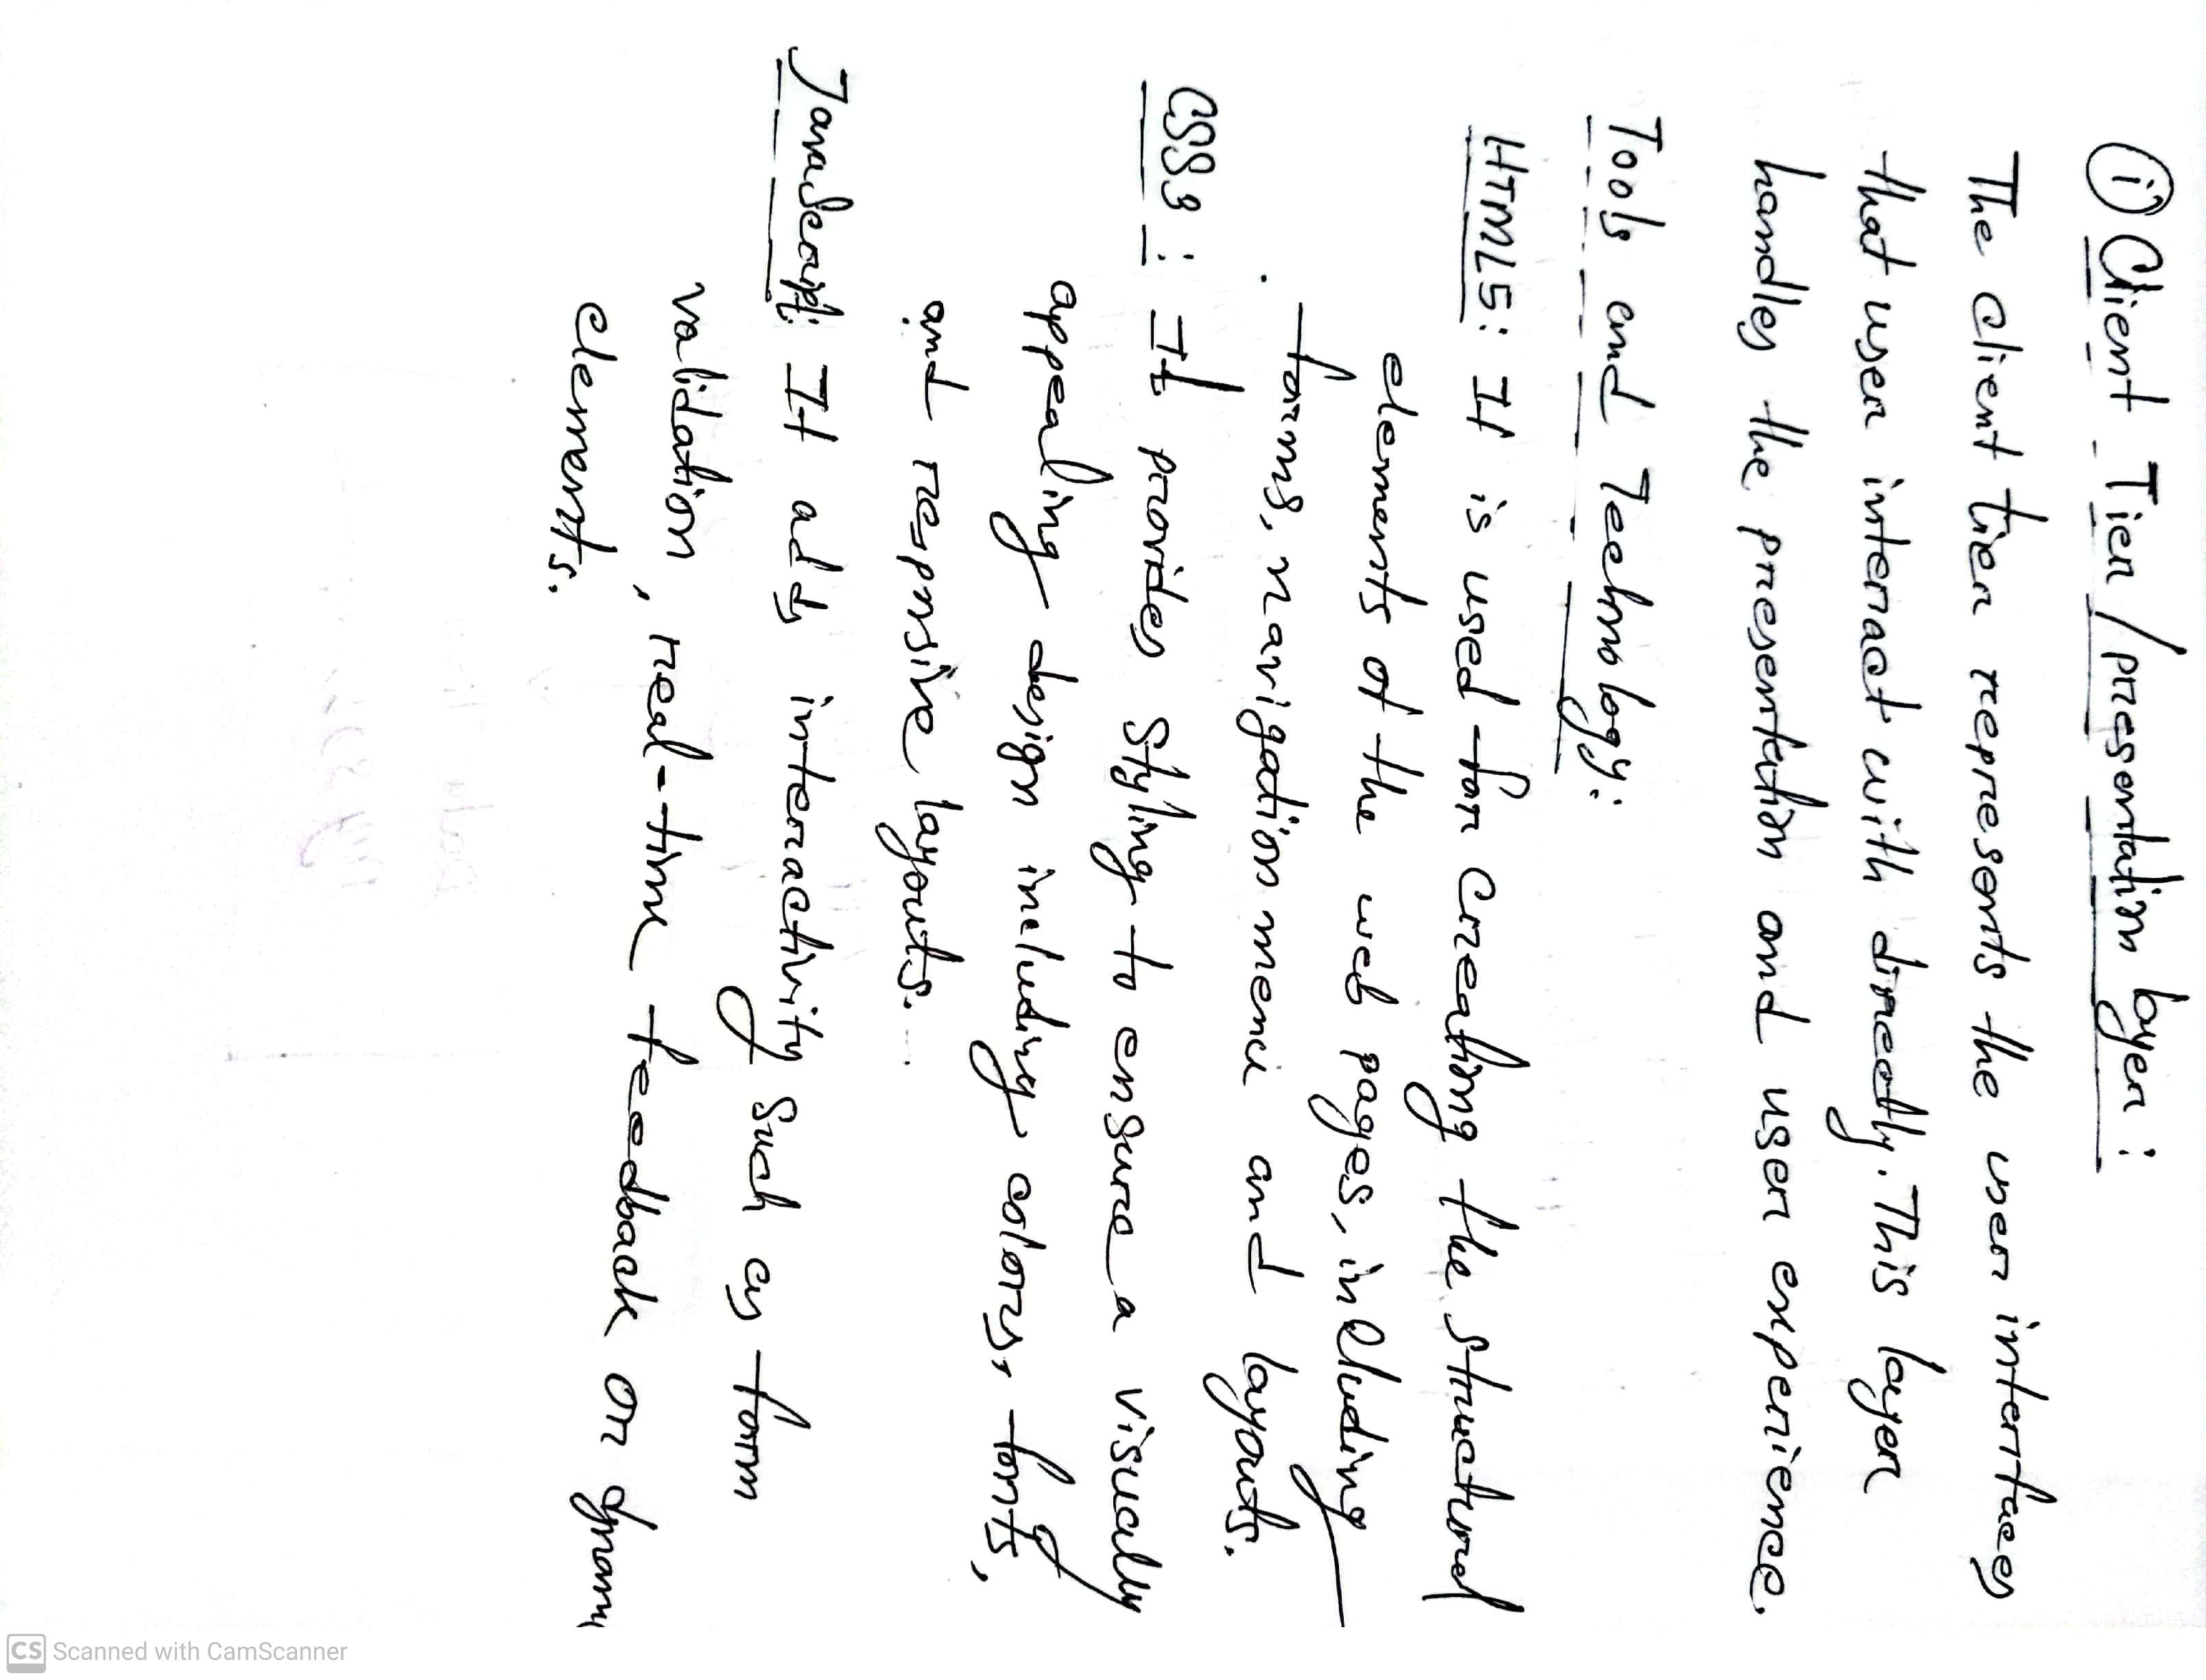 (i) Client Tier/presentation layer:
The client tier represents the user interfaces
that user interact with directly. This layer
handles the presentation and user experience.
Tools and Technology:
HTML5: It is used for creating the structural
elements of the web pages, including
forms, navigation menu and layouts.
CSS3: It provides Styling to ensure a visually
appealing design including colors, fonts,
and repnsive layouts.
JavaScript: It adds interactivity such as form
validation, real-time feedback or dynamic
elements.
CS Scanned with CamScanner